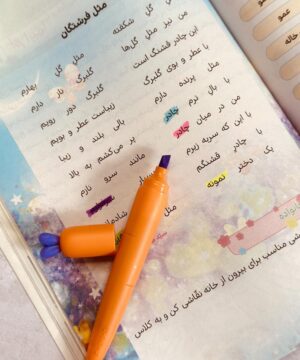 مثل فرشتگان
من گل شکفته
مثل گل بهارم
من نیز مثل گل‌ها
گلبرگ دار دارم
این چادر قشنگ است
گلبرگ دور رویم
با عطر و بوی گلبرگ
زیباست عطر و بویم
مثل پرنده دارم
بالی بلند و زیبا
با بال نرم چادر
پر می‌کشم به بالا
من در میان چادر
مانند سرو نازم
با این که سربه زیرم
با چادر قشنگم
یک دختر نمونه
مثل
شادمانم
عمو
خاله
مناسب برای بیرون از خانه نقاشی کن و به کلاس